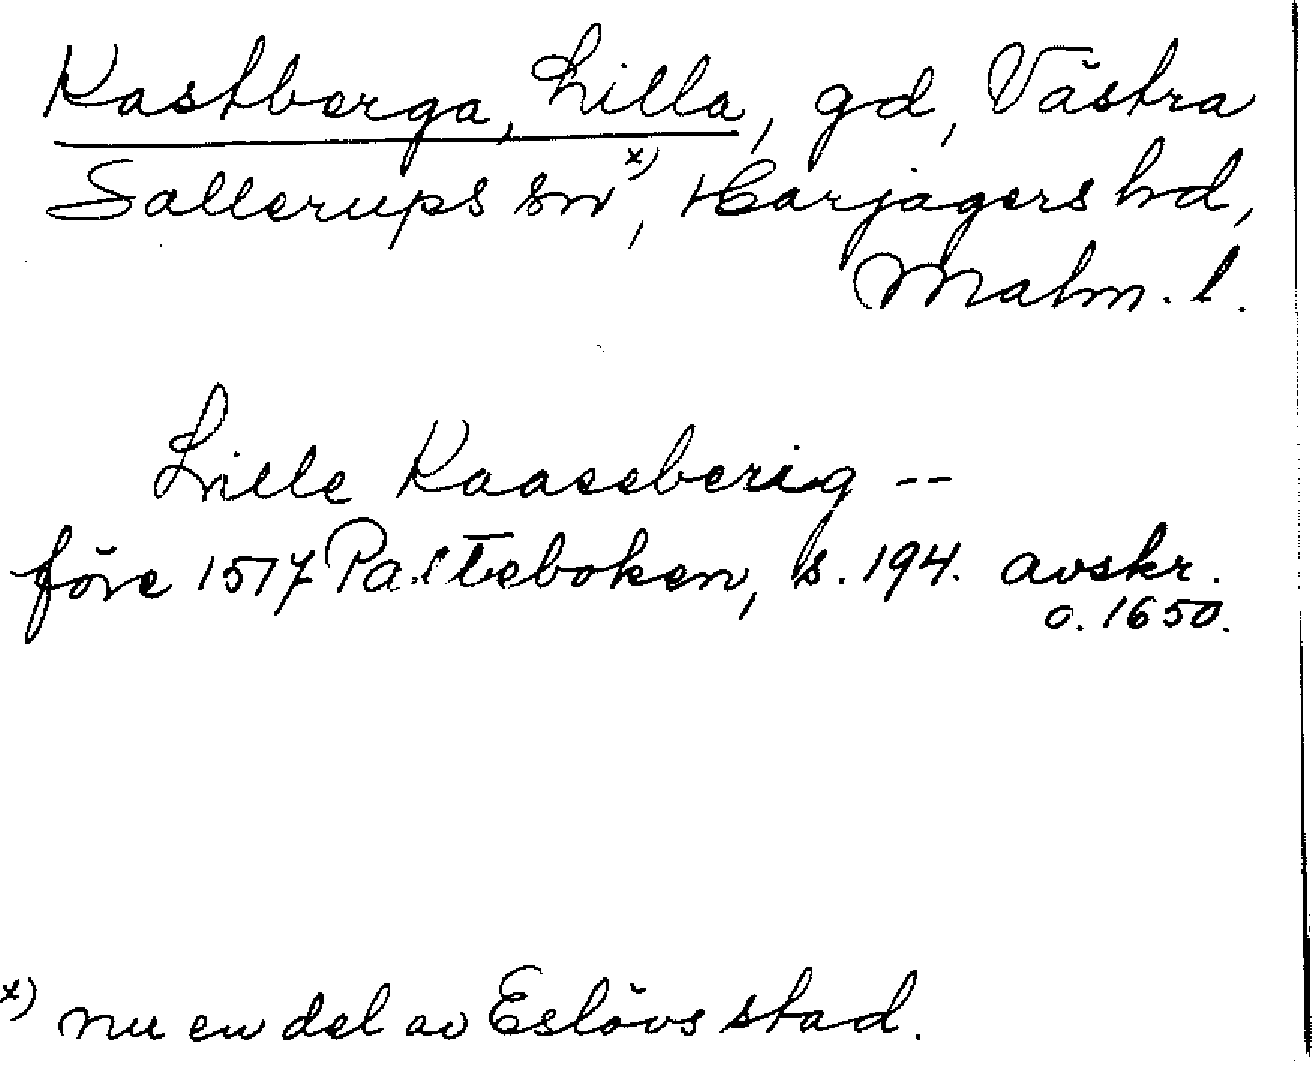 Kastberga, Lilla, gd, Västra
Sallerups sn x), Harjagers hd,
Malm. l.
Lille Kaaseberig --
före 1517 Palteboken, s. 194. avskr.
o. 1650.
x) nu en del av Eslövs stad.